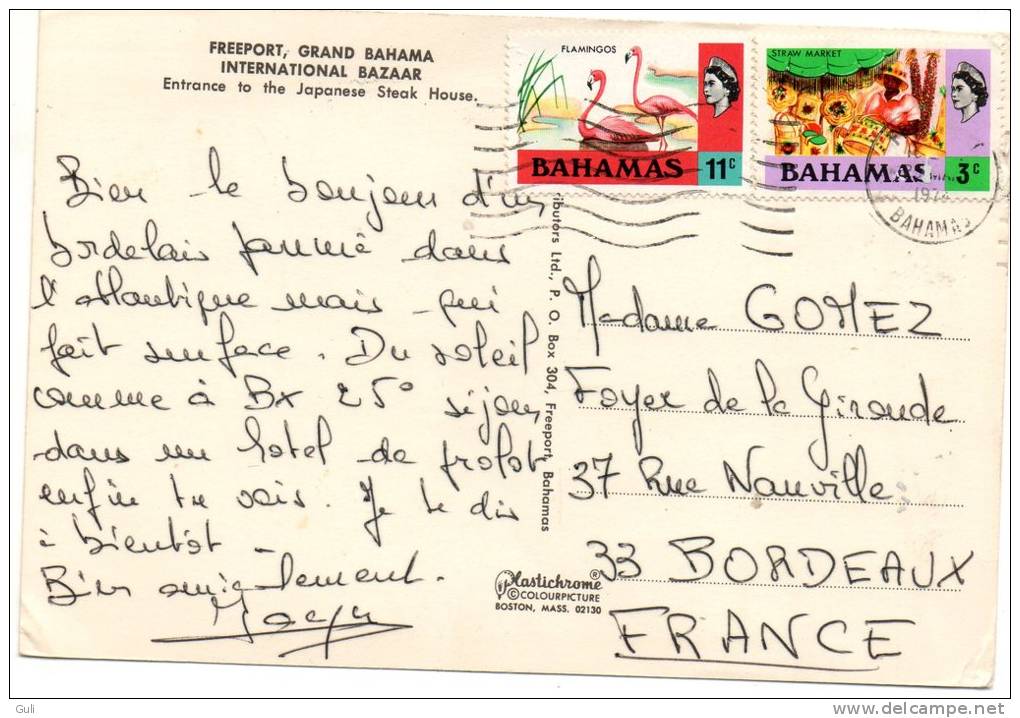 FREEPORT, GRAND BAHAMA
INTERNATIONAL BAZAAR
Entrance to the Japanese Steak House.
FLAMINGOS
BAHAMAS 11c
STRAW MARKET
BAHAMAS 3c
BAHAMAS
Bien le bonjour d'un
bordelais paumé dans
l'atlantique mais qui
fait surface. Du soleil
comme à Bx 25° séjour
dans un hotel de prolot
enfin tu vois. Je te dis
à bientôt -
Bien amicalement.
ributors Ltd., P. O. Box 304, Freeport, Bahamas
Plastichrome®
© COLOURPICTURE
BOSTON, MASS. 02130
Madame GOMEZ
Foyer de la Gironde
37 Rue Nauville
33 BORDEAUX
FRANCE
Guli
delcampe.net